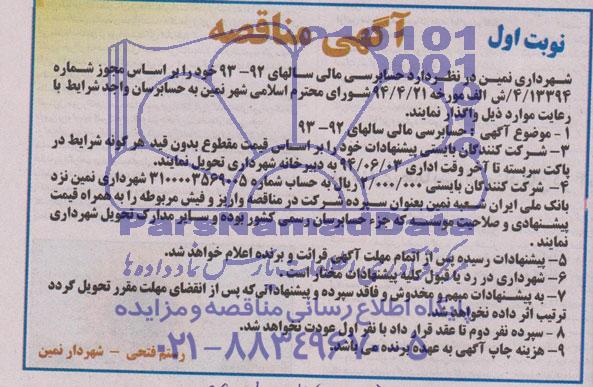 آگهی مناقصه
نوبت اول
شهرداری نمین در نظر دارد حسابرسی مالی سالهای ۹۲- ۹۳ خود را بر اساس مجوز شماره
۴/۱۳۳۹۴/ش الف مورخه ۹۴/۴/۲۱ شورای محترم اسلامی شهر نمین به حسابرسان واجد شرایط با
رعایت موارد ذیل واگذار نمایند.
۱- موضوع آگهی : حسابرسی مالی سالهای ۹۲- ۹۳
۳- شرکت کنندگان بایستی پیشنهادات خود را بر اساس قیمت مقطوع بدون قید هر گونه شرایط در
پاکت سربسته تا آخر وقت اداری ۹۴/۰۶/۰۳ به دبیرخانه شهرداری تحویل نمایند.
۴- شرکت کنندگان بایستی ۲/۰۰۰/۰۰۰ ریال به حساب شماره ۳۱۰۰۰۰۳۵۶۹۰۰۵ شهرداری نمین نزد
بانک ملی ایران شعبه نمین بعنوان سپرده شرکت در مناقصه واریز و فیش مربوطه را به همراه قیمت
پیشنهادی و صلاحیت موسسه که جزء حسابرسان رسمی کشور بوده و سایر مدارک تحویل شهرداری
نمایند .
۵- پیشنهادات رسیده پس از اتمام مهلت آگهی قرائت و برنده اعلام خواهد شد.
۶- شهرداری در رد یا قبول کلیه پیشنهادات مختار است.
۷- به پیشنهادات مبهم و مخدوش و فاقد سپرده و پیشنهاداتی که پس از انقضای مهلت مقرر تحویل گردد
ترتیب اثر داده نخواهد شد.
۸- سپرده نفر دوم تا عقد قرار داد با نفر اول عودت نخواهد شد.
۹- هزینه چاپ آگهی به عهده برنده می باشد.
رستم فتحی - شهردار نمین
ParsNamadData
پایگاه اطلاع رسانی مناقصه و مزایده
۰۲۱-۸۸۳۴۹۶۷۰-۵